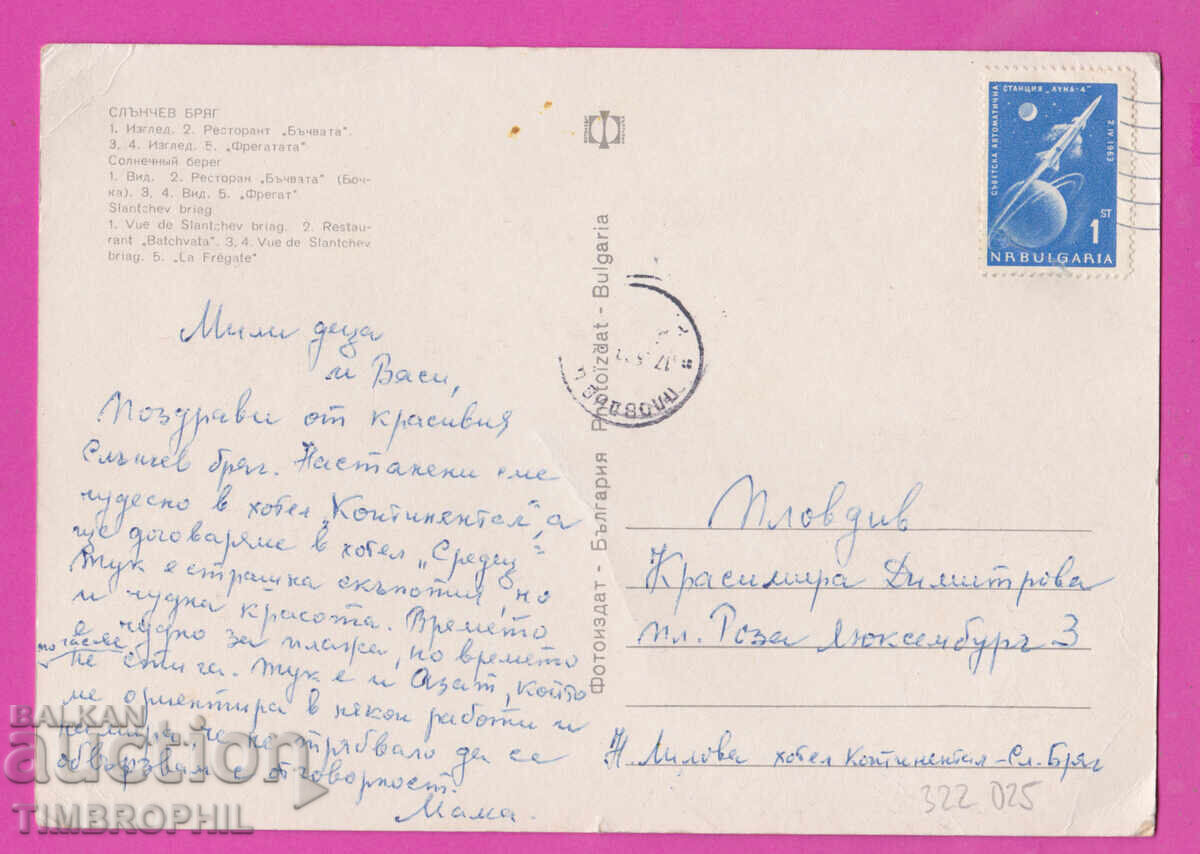 СЛЪНЧЕВ БРЯГ
1. Изглед. 2. Ресторант „Бъчвата".
3, 4. Изглед. 5. „Фрегатата"
Солнечный берег
1. Вид. 2. Ресторан „Бъчвата" (Боч-
ка). 3, 4. Вид. 5. „Фрегат"
Slantchev briag
1. Vue de Slantchev briag. 2. Restau-
rant „Batchvata". 3, 4. Vue de Slantchev
briag. 5. „La Frégate"
Мили деца
и Васи,
Поздрави от красивия
Слънчев бряг. Настанени сме
чудесно в хотел „Континентал", а
ще договаряме в хотел „Средец"
Тук е страшна скъпотия, но
и чудна красота. Времето
е чудно за плажа, но времето
не стига. Тук е и Азат, който
ме ориентира в някои работи и
че не трябвало да се
обвързвам с отговорност.
Мама.
Фотоиздат - България Photoizdat - Bulgaria
СЪВЕТСКА АВТОМАТИЧНА
СТАНЦИЯ „ЛУНА-4"
2.IV.1963
1 ST
NRBULGARIA
Пловдив
Красимира Димитрова
пл. Роза Люксембург 3
Н. Милова хотел Континентал-Сл. Бряг
322 025
BALKAN
auction
TIMBROPHIL